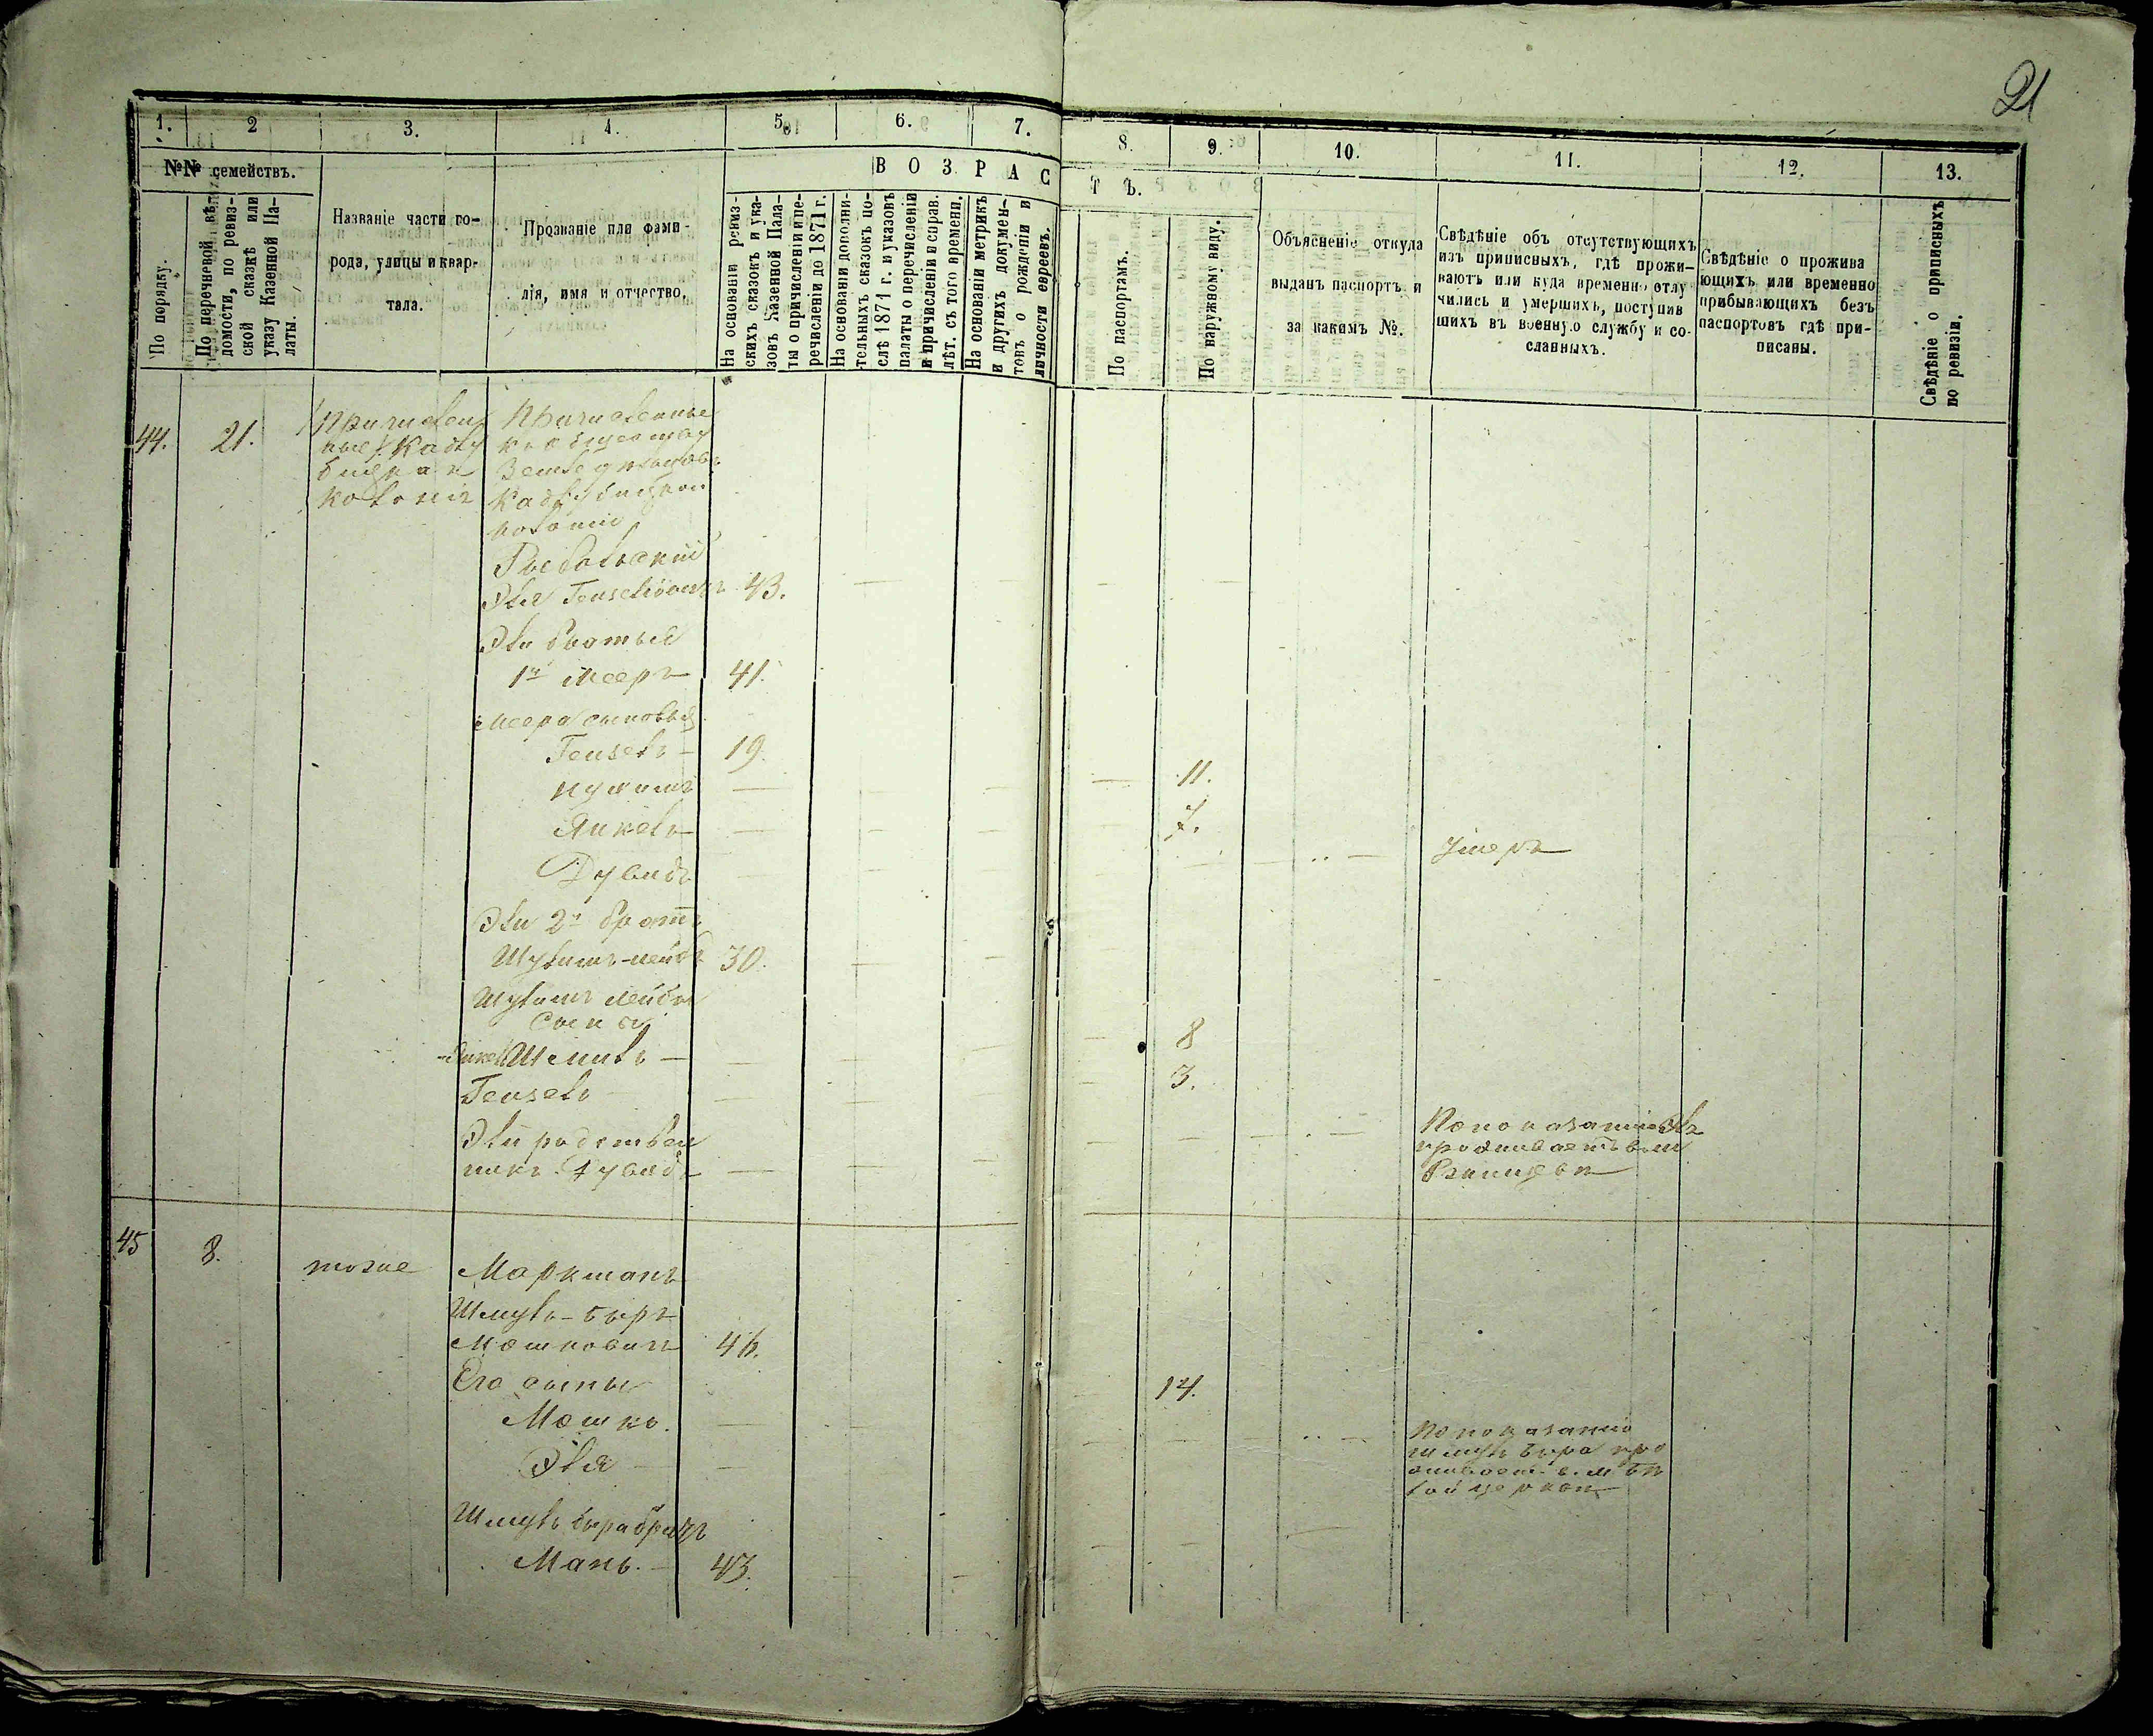 21
1. 2 3. 4. 5. 6. 7. 8. 9. 10. 11. 12. 13.
№№ семействъ.
По порядку.
По перечневой вѣ-
домости, по ревиз-
ской сказкѣ или
указу Казенной Па-
латы.
Названіе части го-
рода, улицы и квар-
тала.
Прозваніе или фами-
лія, имя и отчество.
ВОЗРАСТЪ.
На основаніи ревиз-
скихъ сказокъ и ука-
зовъ Казенной Пала-
ты о причисленіи и пе-
речисленіи до 1871 г.
На основаніи дополни-
тельныхъ сказокъ по-
слѣ 1871 г. и указовъ
палаты о перечисленіи
и причисленіи и справ.
лѣт. съ того времени.
На основаніи метрикъ
и другихъ докумен-
товъ о рожденіи и
личности евреевъ.
По паспортамъ.
По наружному виду.
Объясненіе откуда
выданъ паспортъ и
за какимъ №.
Свѣдѣніе объ отсутствующихъ
изъ приписныхъ, гдѣ прожи-
ваютъ или куда временно отлу
чились и умершихъ, поступив
шихъ въ военную службу и со-
сланныхъ.
Свѣдѣніе о прожива
ющихъ или временно
прибывающихъ безъ
паспортовъ гдѣ при-
писаны.
Свѣдѣніе о приписныхъ
по ревизіи.
44. 21.
Причислен
ные
колоніи
Причисленные
къ обществу
колоніи
Эля 43.
Эли братья
1й Мееръ 41.
Меера сыновья
19.
11.
Янкель 7.
Дувидъ Умеръ
Эли 2й братъ
Шулимъ-Лейба 30.
Шулимъ Лейбы
сыны
8
3.
Эли родствен
никъ Дувидъ
По показанію Эли
проживаетъ въ м
45 8. тоже
Маркманъ
Шмуль-Беръ
Мошковичъ 46.
Его сыны
Мошко. 14.
Эля
По показанію
Шмуль Бера про
живаетъ в. м. Бѣ
лой церкви
Шмуль Бера братъ
Мань. 43.